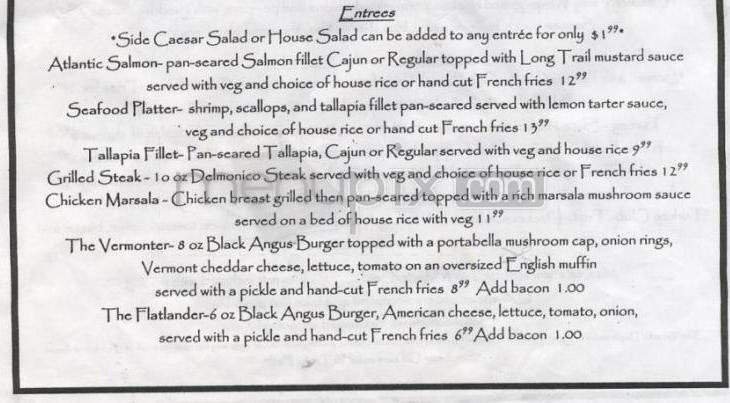 Entrees
•Side Caesar Salad or House Salad can be added to any entrée for only $1⁹⁹•
Atlantic Salmon- pan-seared Salmon fillet Cajun or Regular topped with Long Trail mustard sauce
served with veg and choice of house rice or hand cut French fries 12⁹⁹
Seafood Platter- shrimp, scallops, and tallapia fillet pan-seared served with lemon tarter sauce,
veg and choice of house rice or hand cut French fries 13⁹⁹
Tallapia Fillet- Pan-seared Tallapia, Cajun or Regular served with veg and house rice 9⁹⁹
Grilled Steak - 10 oz Delmonico Steak served with veg and choice of house rice or French fries 12⁹⁹
Chicken Marsala - Chicken breast grilled then pan-seared topped with a rich marsala mushroom sauce
served on a bed of house rice with veg 11⁹⁹
The Vermonter- 8 oz Black Angus Burger topped with a portabella mushroom cap, onion rings,
Vermont cheddar cheese, lettuce, tomato on an oversized English muffin
served with a pickle and hand-cut French fries 8⁹⁹ Add bacon 1.00
The Flatlander-6 oz Black Angus Burger, American cheese, lettuce, tomato, onion,
served with a pickle and hand-cut French fries 6⁹⁹ Add bacon 1.00